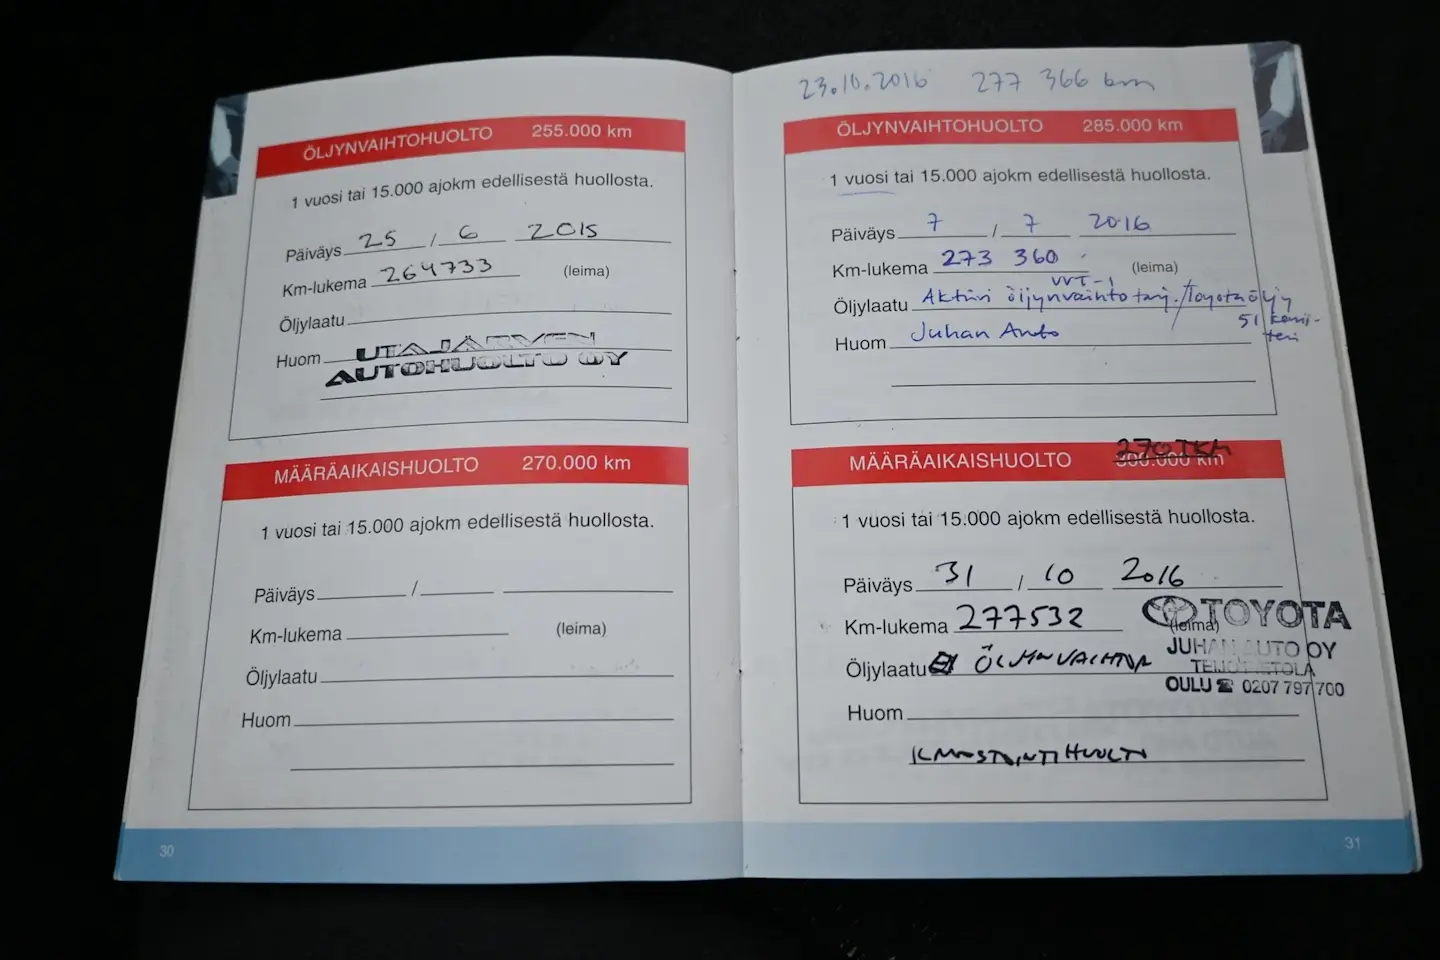 ÖLJYNVAIHTOHUOLTO 255.000 km
1 vuosi tai 15.000 ajokm edellisestä huollosta.
Päiväys 25 / 6 2015
Km-lukema 264733 (leima)
Öljylaatu
Huom UTAJÄRVEN
AUTOHUOLTO OY
MÄÄRÄAIKAISHUOLTO 270.000 km
1 vuosi tai 15.000 ajokm edellisestä huollosta.
Päiväys / 
Km-lukema (leima)
Öljylaatu
Huom
30
23.10.2016 277 366 km
ÖLJYNVAIHTOHUOLTO 285.000 km
1 vuosi tai 15.000 ajokm edellisestä huollosta.
Päiväys 7 / 7 2016
Km-lukema 273 360 (leima)
VVT-i
Öljylaatu Aktiivi öljynvaihto tarj. / Toyota öljy
51
Huom Juhan Auto
MÄÄRÄAIKAISHUOLTO 300.000 km 270 TKM
1 vuosi tai 15.000 ajokm edellisestä huollosta.
Päiväys 31 / 10 2016
Km-lukema 277532 (leima) TOYOTA
JUHAN AUTO OY
Öljylaatu ÖLJYNVAIHTOA
OULU ☎ 0207 797 700
Huom
ILMASTOINTIHUOLTO
31